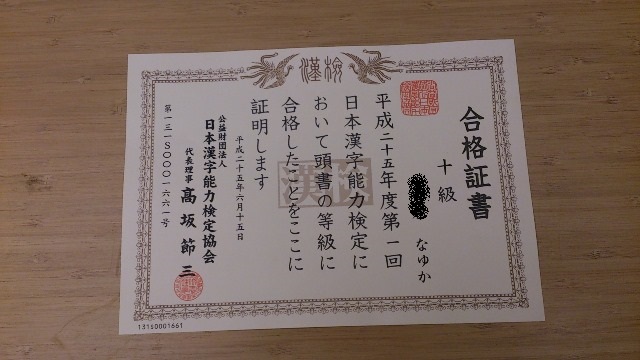 漢検
合格証書
十級
なゆか
平成二十五年度第一回
日本漢字能力検定に
おいて頭書の等級に
合格したことをここに
証明します
平成二十五年六月十五日
公益財団法人
日本漢字能力検定協会
代表理事 高坂節三
第一三一S〇〇〇一六六一号
漢検
131S0001661